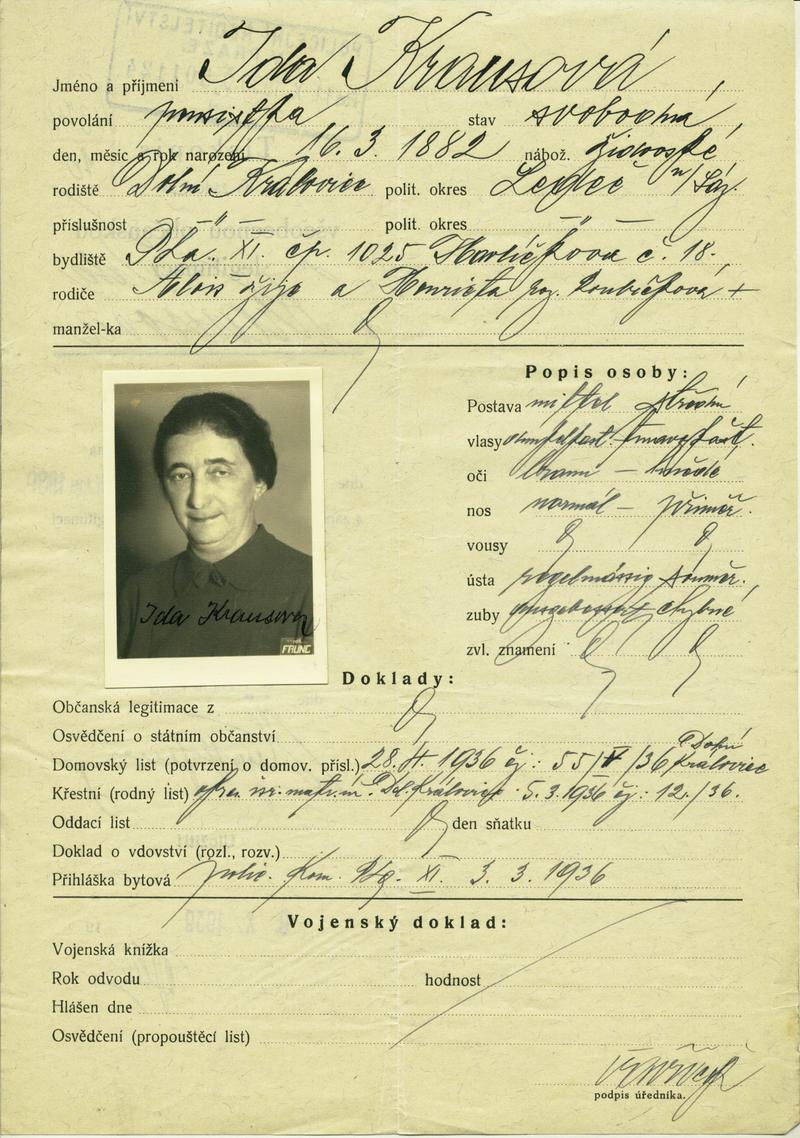 Jméno a příjmení Ida Krausová,
povolání stav svobodná,
den, měsíc a rok narození 16. 3. 1882 nábož. židovské
rodiště Dolní Kralovice polit. okres Ledeč n/Sáz.
příslušnost — " — polit. okres — " —
bydliště Pha. XI. čp. 1025 Havlíčkova č. 18.,
rodiče Alois žije a Henrieta roz. Roubíčková +
manžel-ka
Popis osoby:
Postava mittel střední
vlasy tmavopros.
oči braun — hnědé
nos normál — přiměř.
vousy
ústa regelmässig souměr.,
zuby ausgebessert chybné
zvl. znamení
Ida Krausova
FRUNC
Doklady:
Občanská legitimace z
Osvědčení o státním občanství
Domovský list (potvrzení o domov. přísl.) 28. II. 1936 čj: 55/V/36 Dolní Kralovice
Křestní (rodný list) Dol. Kralovice 5. 3. 1936 čj: 12./36.
Oddací list den sňatku
Doklad o vdovství (rozl., rozv.)
Přihláška bytová polic. Kom. Phg. XI. 3. 3. 1936
Vojenský doklad:
Vojenská knížka
Rok odvodu hodnost
Hlášen dne
Osvědčení (propouštěcí list)
podpis úředníka.